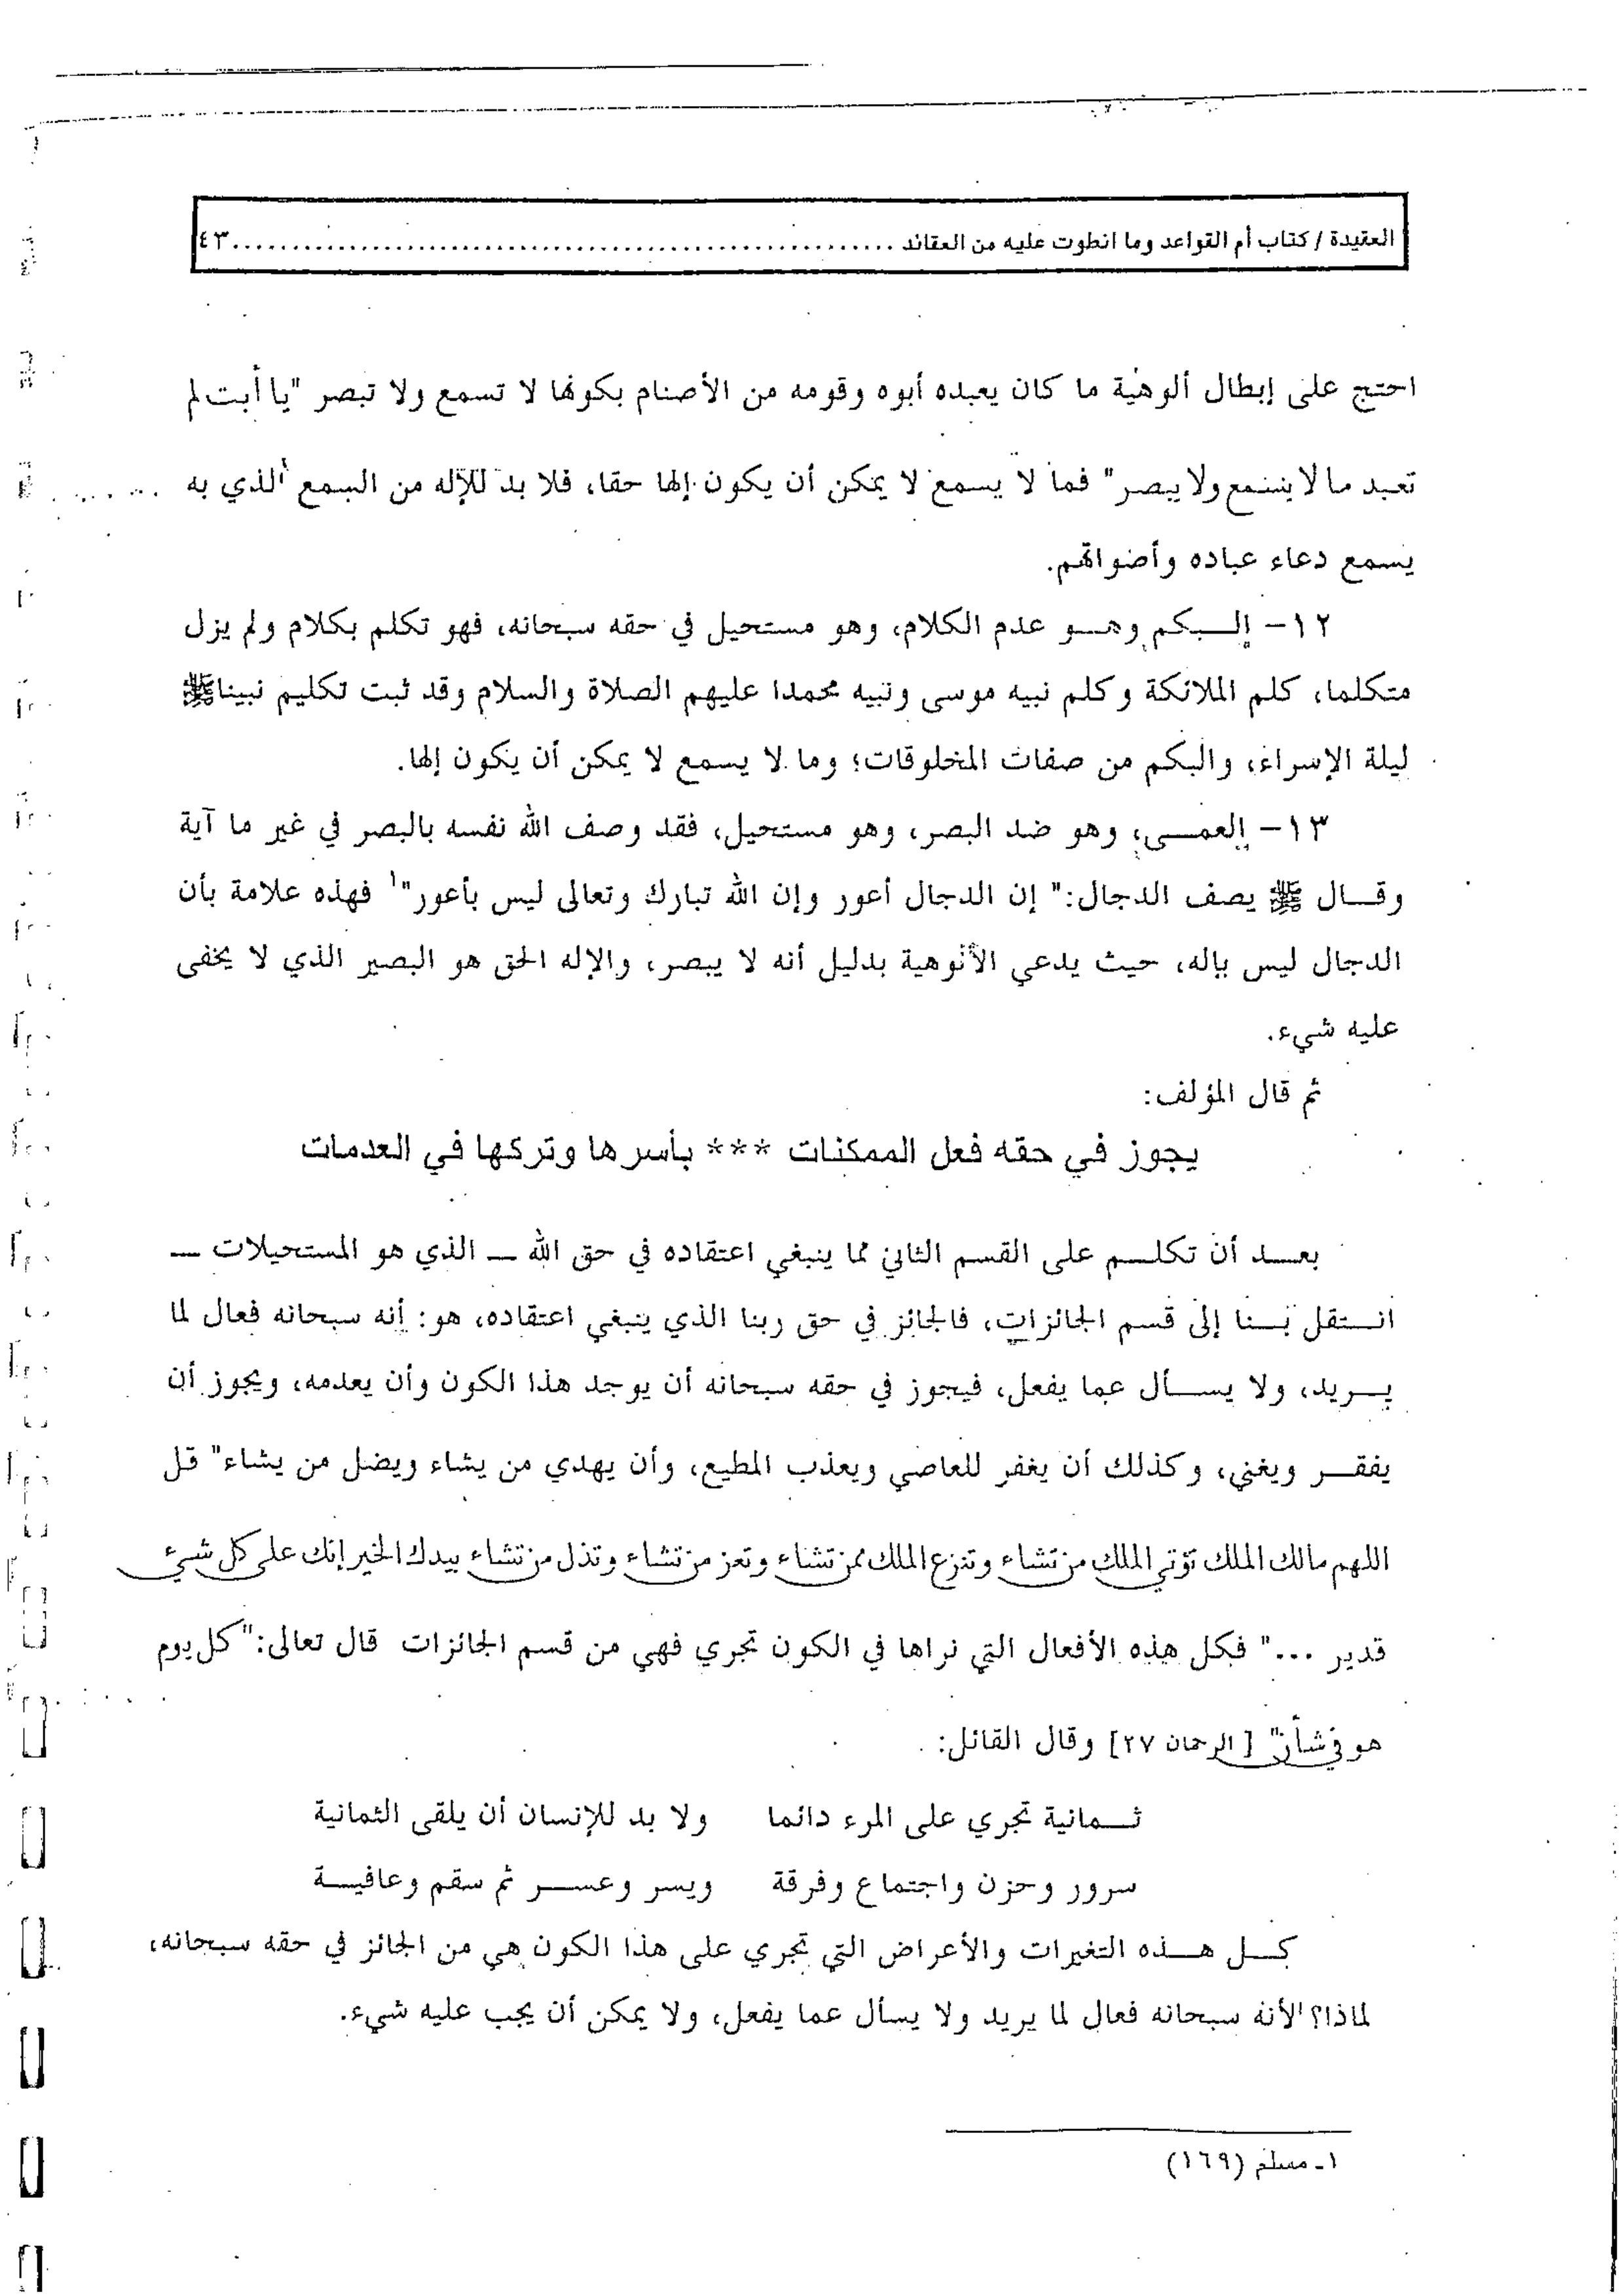 العقيدة / كتاب أم القواعد وما انطوت عليه من العقائد ........................................................٤٣
احتج على إبطال ألوهية ما كان يعبده أبوه وقومه من الأصنام بكونها لا تسمع ولا تبصر "يا أبت لم
تعبد ما لا يسمع ولا يبصر" فما لا يسمع لا يمكن أن يكون إلها حقا، فلا بد للإله من السمع الذي به
يسمع دعاء عباده وأصواتهم.
١٢- البكم وهو عدم الكلام، وهو مستحيل في حقه سبحانه، فهو تكلم بكلام ولم يزل
متكلما، كلم الملائكة وكلم نبيه موسى ونبيه محمدا عليهم الصلاة والسلام وقد ثبت تكليم نبينا ﷺ
ليلة الإسراء، والبكم من صفات المخلوقات؛ وما لا يسمع لا يمكن أن يكون إلها.
١٣- العمى، وهو ضد البصر، وهو مستحيل، فقد وصف الله نفسه بالبصر في غير ما آية
وقال ﷺ يصف الدجال:" إن الدجال أعور وإن الله تبارك وتعالى ليس بأعور"١ فهذه علامة بأن
الدجال ليس بإله، حيث يدعي الألوهية بدليل أنه لا يبصر، والإله الحق هو البصير الذي لا يخفى
عليه شيء.
ثم قال المؤلف:
يجوز في حقه فعل الممكنات *** بأسرها وتركها في العدمات
بعد أن تكلم على القسم الثاني مما ينبغي اعتقاده في حق الله – الذي هو المستحيلات –
انتقل بنا إلى قسم الجائزات، فالجائز في حق ربنا الذي ينبغي اعتقاده، هو: أنه سبحانه فعال لما
يريد، ولا يسأل عما يفعل، فيجوز في حقه سبحانه أن يوجد هذا الكون وأن يعدمه، ويجوز أن
يفقر ويغني، وكذلك أن يغفر للعاصي ويعذب المطيع، وأن يهدي من يشاء ويضل من يشاء" قل
اللهم مالك الملك تؤتي الملك من تشاء وتنزع الملك ممن تشاء وتعز من تشاء وتذل من تشاء بيدك الخير إنك على كل شيء
قدير ..." فكل هذه الأفعال التي نراها في الكون تجري فهي من قسم الجائزات قال تعالى:" كل يوم
هو في شأن" [ الرحمان ٢٧] وقال القائل:
ثمانية تجري على المرء دائما ولا بد للإنسان أن يلقى الثمانية
سرور وحزن واجتماع وفرقة ويسر وعسر ثم سقم وعافية
كل هذه التغيرات والأعراض التي تجري على هذا الكون هي من الجائز في حقه سبحانه،
لماذا؟ لأنه سبحانه فعال لما يريد ولا يسأل عما يفعل، ولا يمكن أن يجب عليه شيء.
١- مسلم (١٦٩)